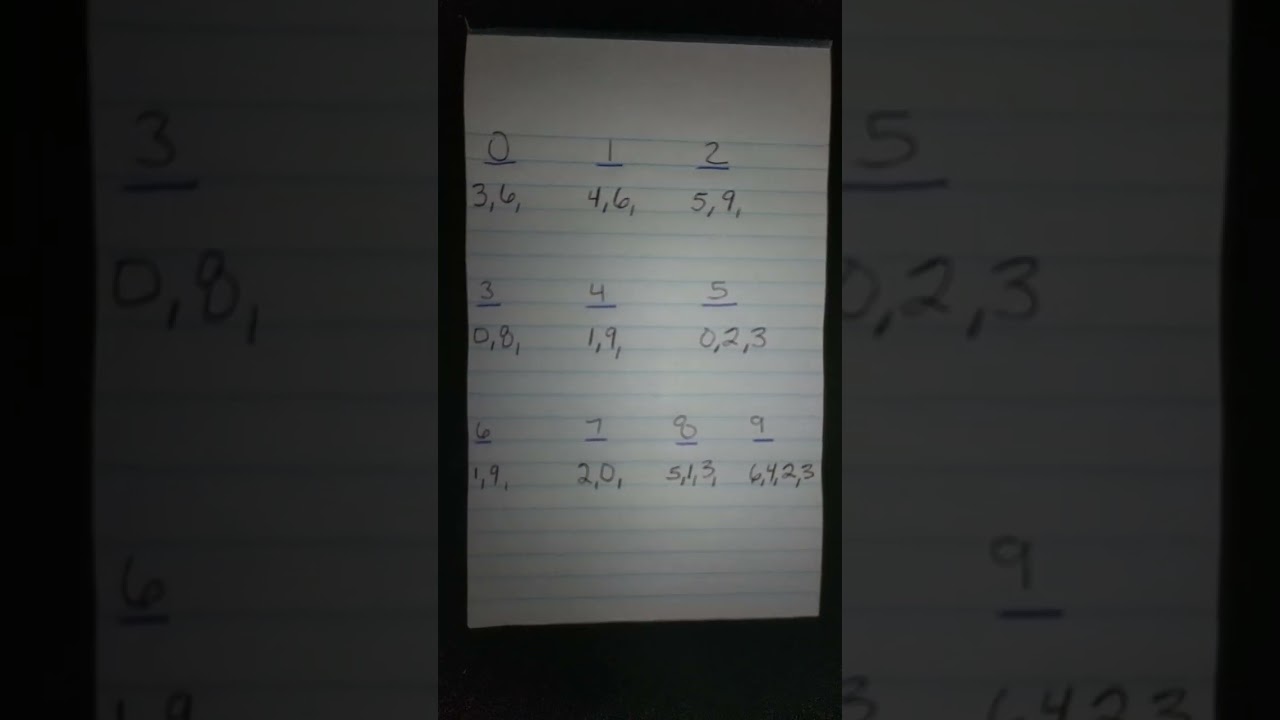 0 1 2
3,6, 4,6, 5,9,
3 4 5
0,8, 1,9, 0,2,3
6 7 8 9
1,9, 2,0, 5,1,3, 6,4,2,3